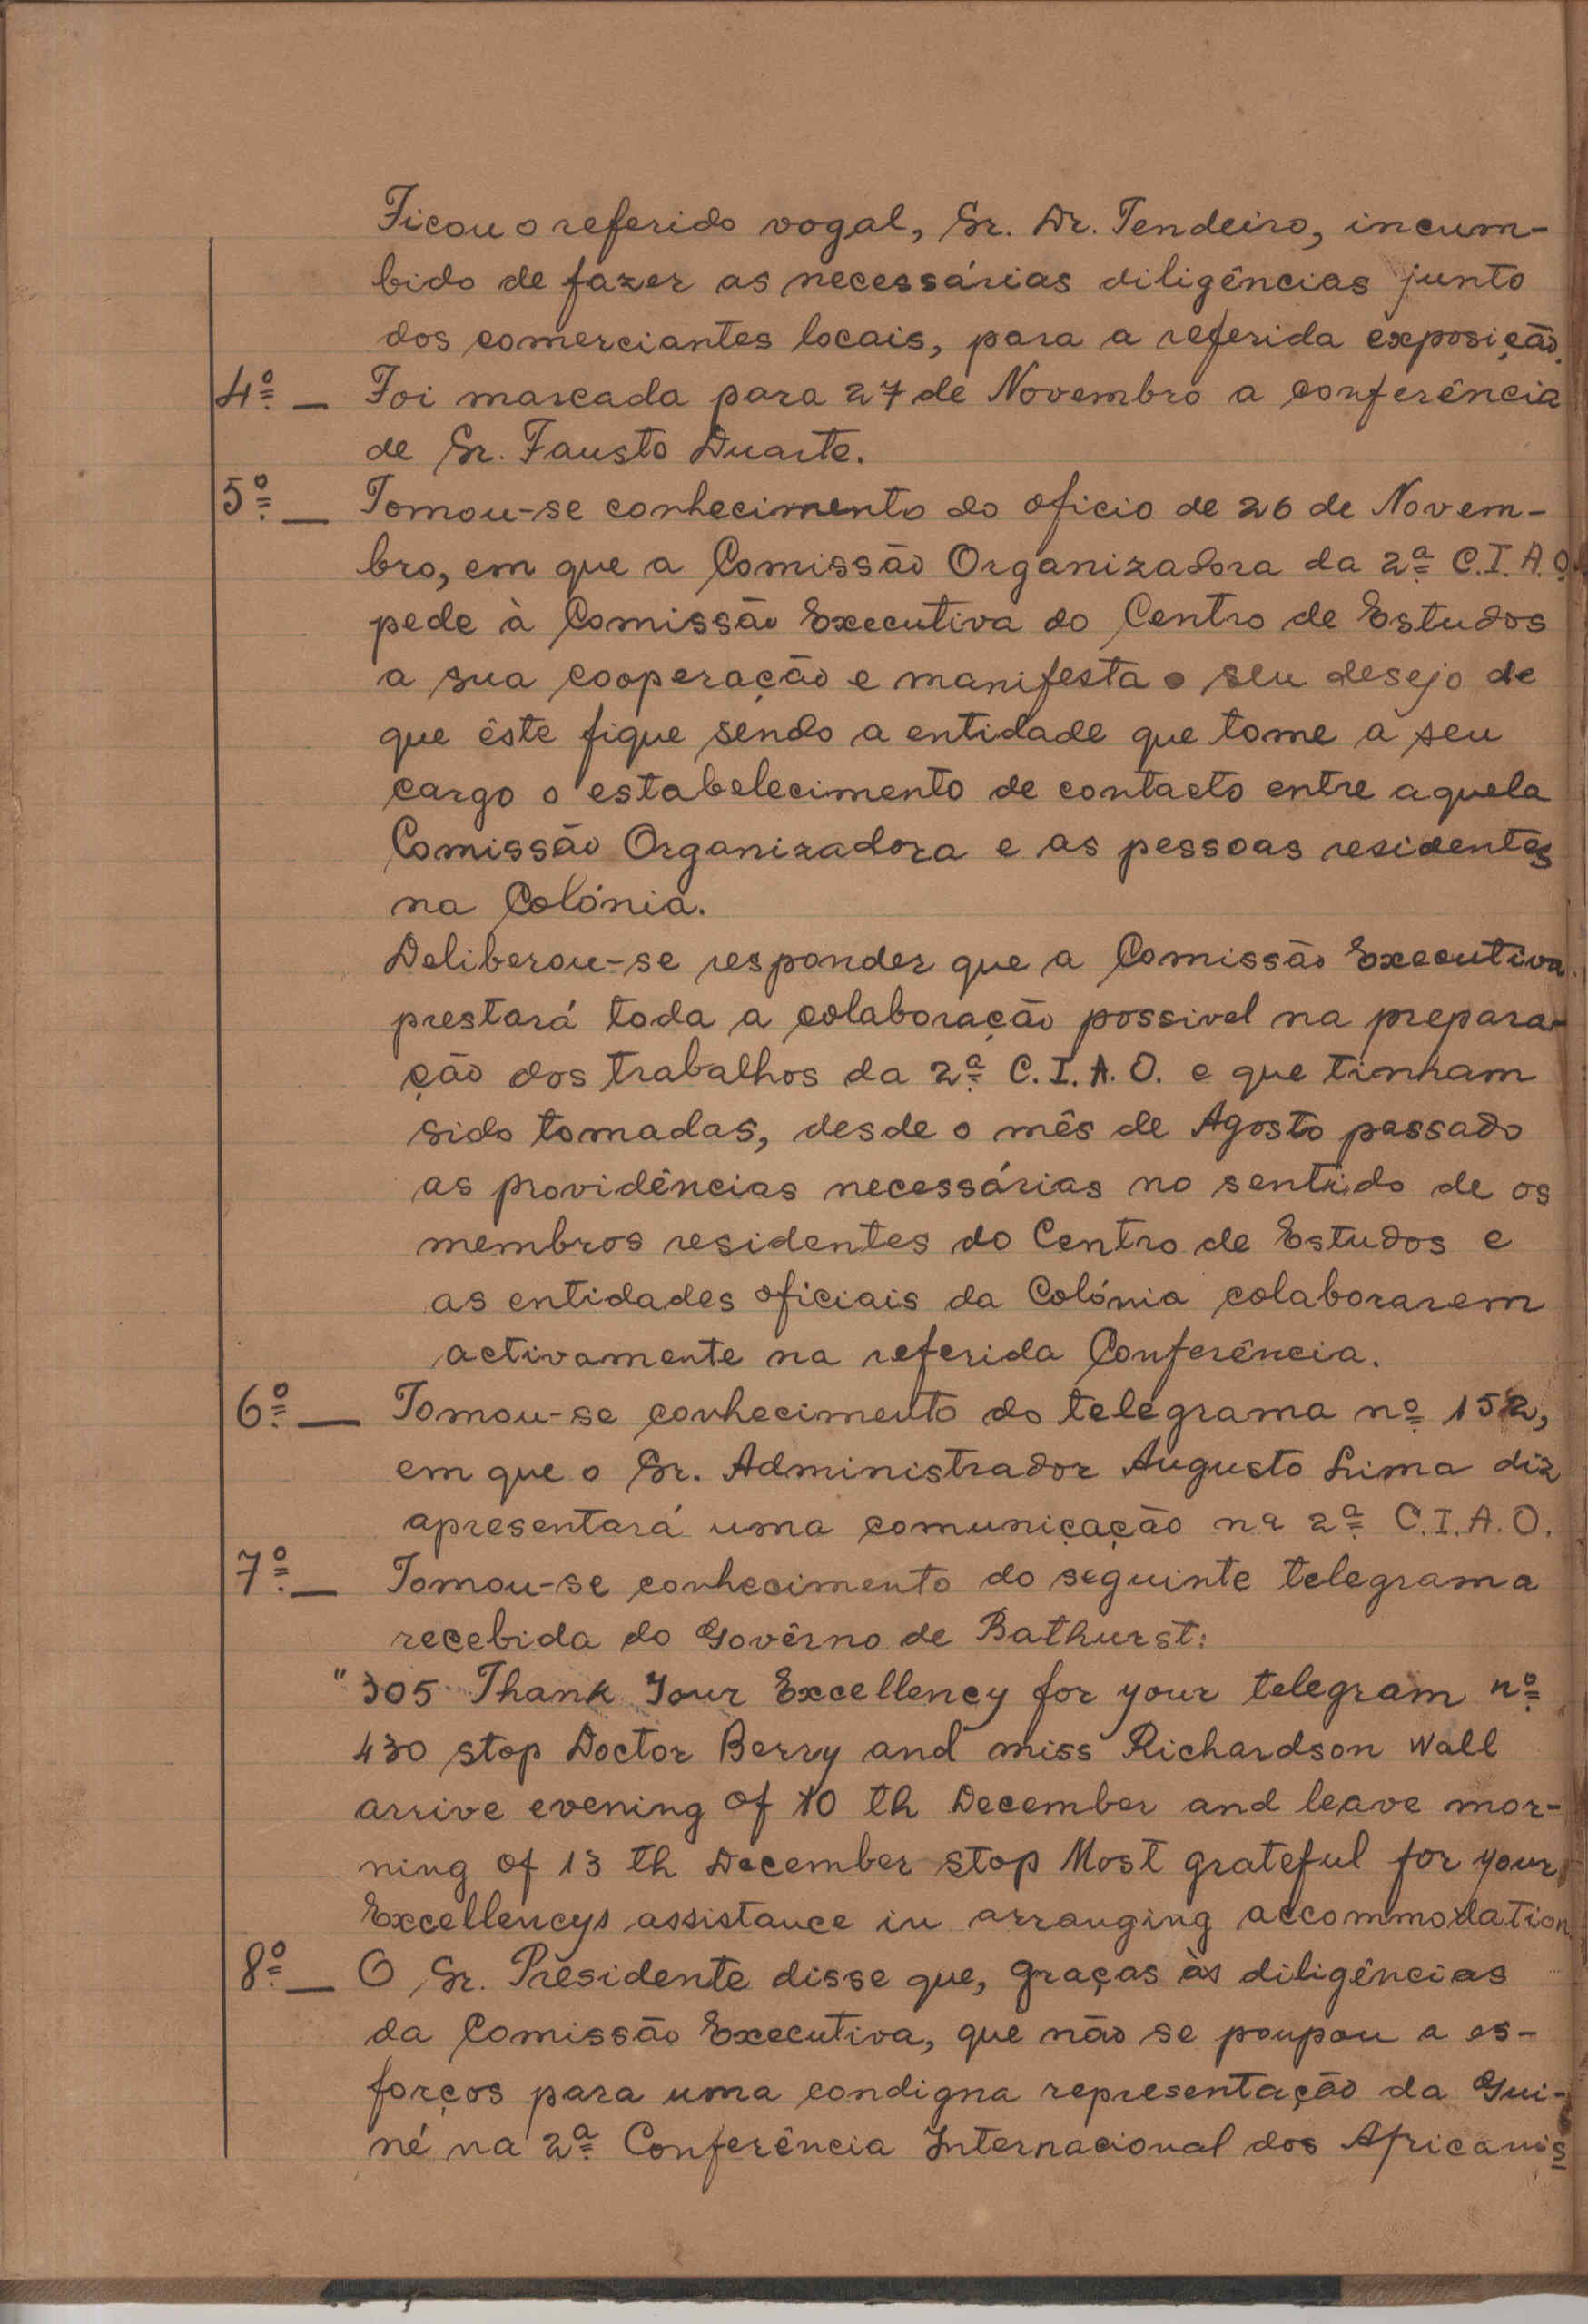 Ficou o referido vogal, Sr. Dr. Tendeiro, incum-
bido de fazer as necessárias diligências junto
dos comerciantes locais, para a referida exposição.
4º — Foi marcada para 27 de Novembro a conferência
de Sr. Fausto Duarte.
5º — Tomou-se conhecimento do oficio de 26 de Novem-
bro, em que a Comissão Organizadora da 2ª C.I.A.O.
pede à Comissão Executiva do Centro de Estudos
a sua cooperação e manifesta o seu desejo de
que êste fique sendo a entidade que tome a seu
cargo o estabelecimento de contacto entre aquela
Comissão Organizadora e as pessoas residentes
na Colónia.
Deliberou-se responder que a Comissão Executiva
prestará toda a colaboração possivel na prepara-
ção dos trabalhos da 2ª C.I.A.O. e que tinham
sido tomadas, desde o mês de Agosto passado
as providências necessárias no sentido de os
membros residentes do Centro de Estudos e
as entidades oficiais da Colónia colaborarem
activamente na referida Conferência.
6º — Tomou-se conhecimento do telegrama nº 152,
em que o Sr. Administrador Augusto Lima diz
apresentará uma comunicação na 2ª C.I.A.O.
7º — Tomou-se conhecimento do seguinte telegrama
recebida do Govêrno de Bathurst:
"305 Thank Your Excellency for your telegram nº
430 stop Doctor Berry and miss Richardson Wall
arrive evening of 10 th December and leave mor-
ning of 13 th December stop Most grateful for your
Excellencys assistance in arranging accommodation
8º — O Sr. Presidente disse que, graças às diligências
da Comissão Executiva, que não se poupou a es-
forços para uma condigna representação da Gui-
né na 2ª Conferência Internacional dos Africanis